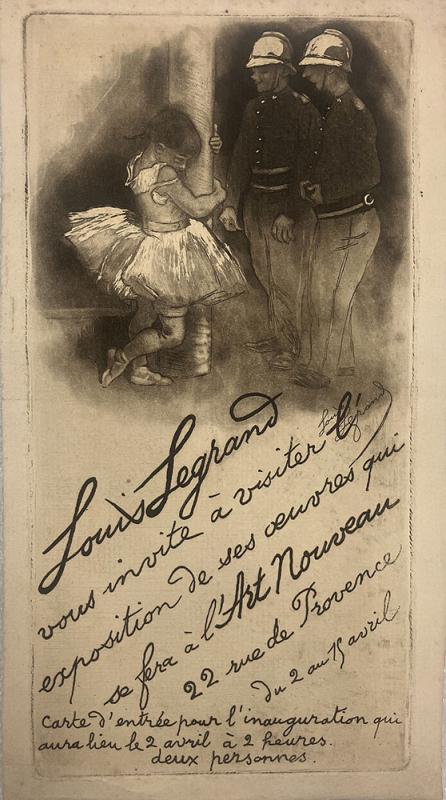 Louis Legrand
Louis Legrand
vous invite à visiter l'
exposition de ses œuvres qui
se fera à l'Art Nouveau
22 rue de Provence
du 2 au 15 avril
Carte d'entrée pour l'inauguration qui
aura lieu le 2 avril à 2 heures.
deux personnes.